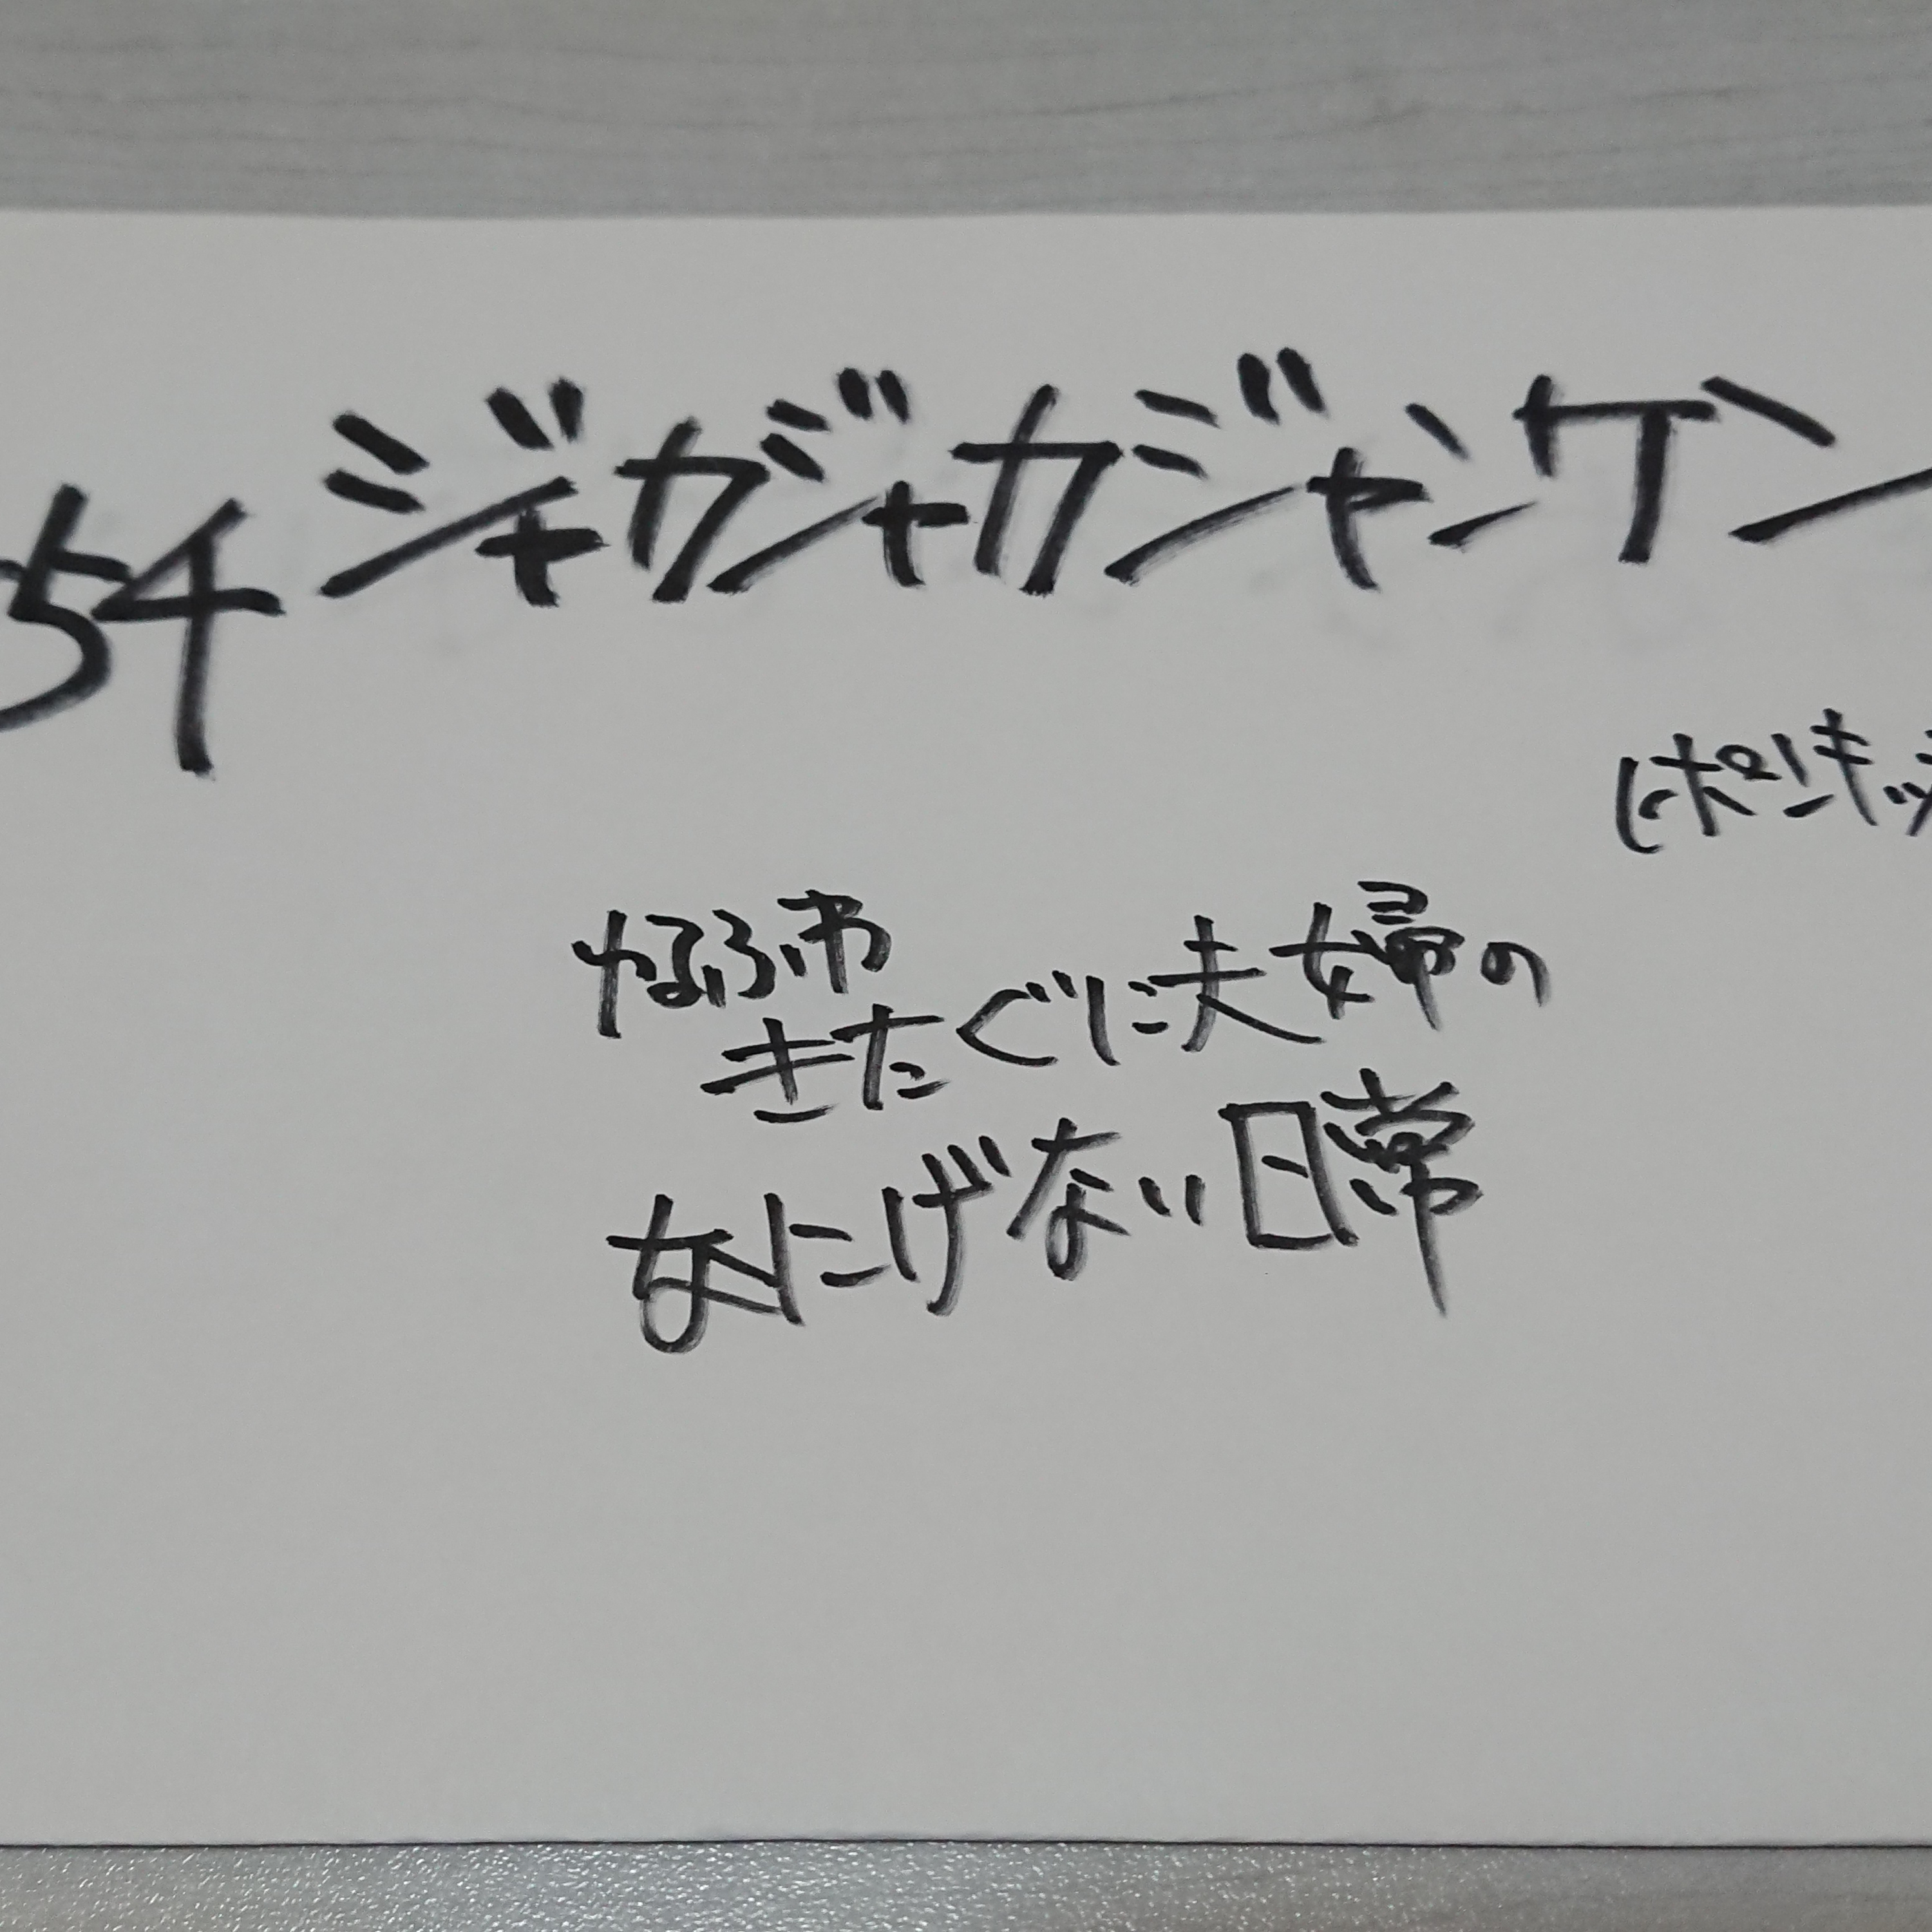 54 ジャガジャガジャンケン
ヒポリキッ
きたぐに夫婦の
なにげない日常